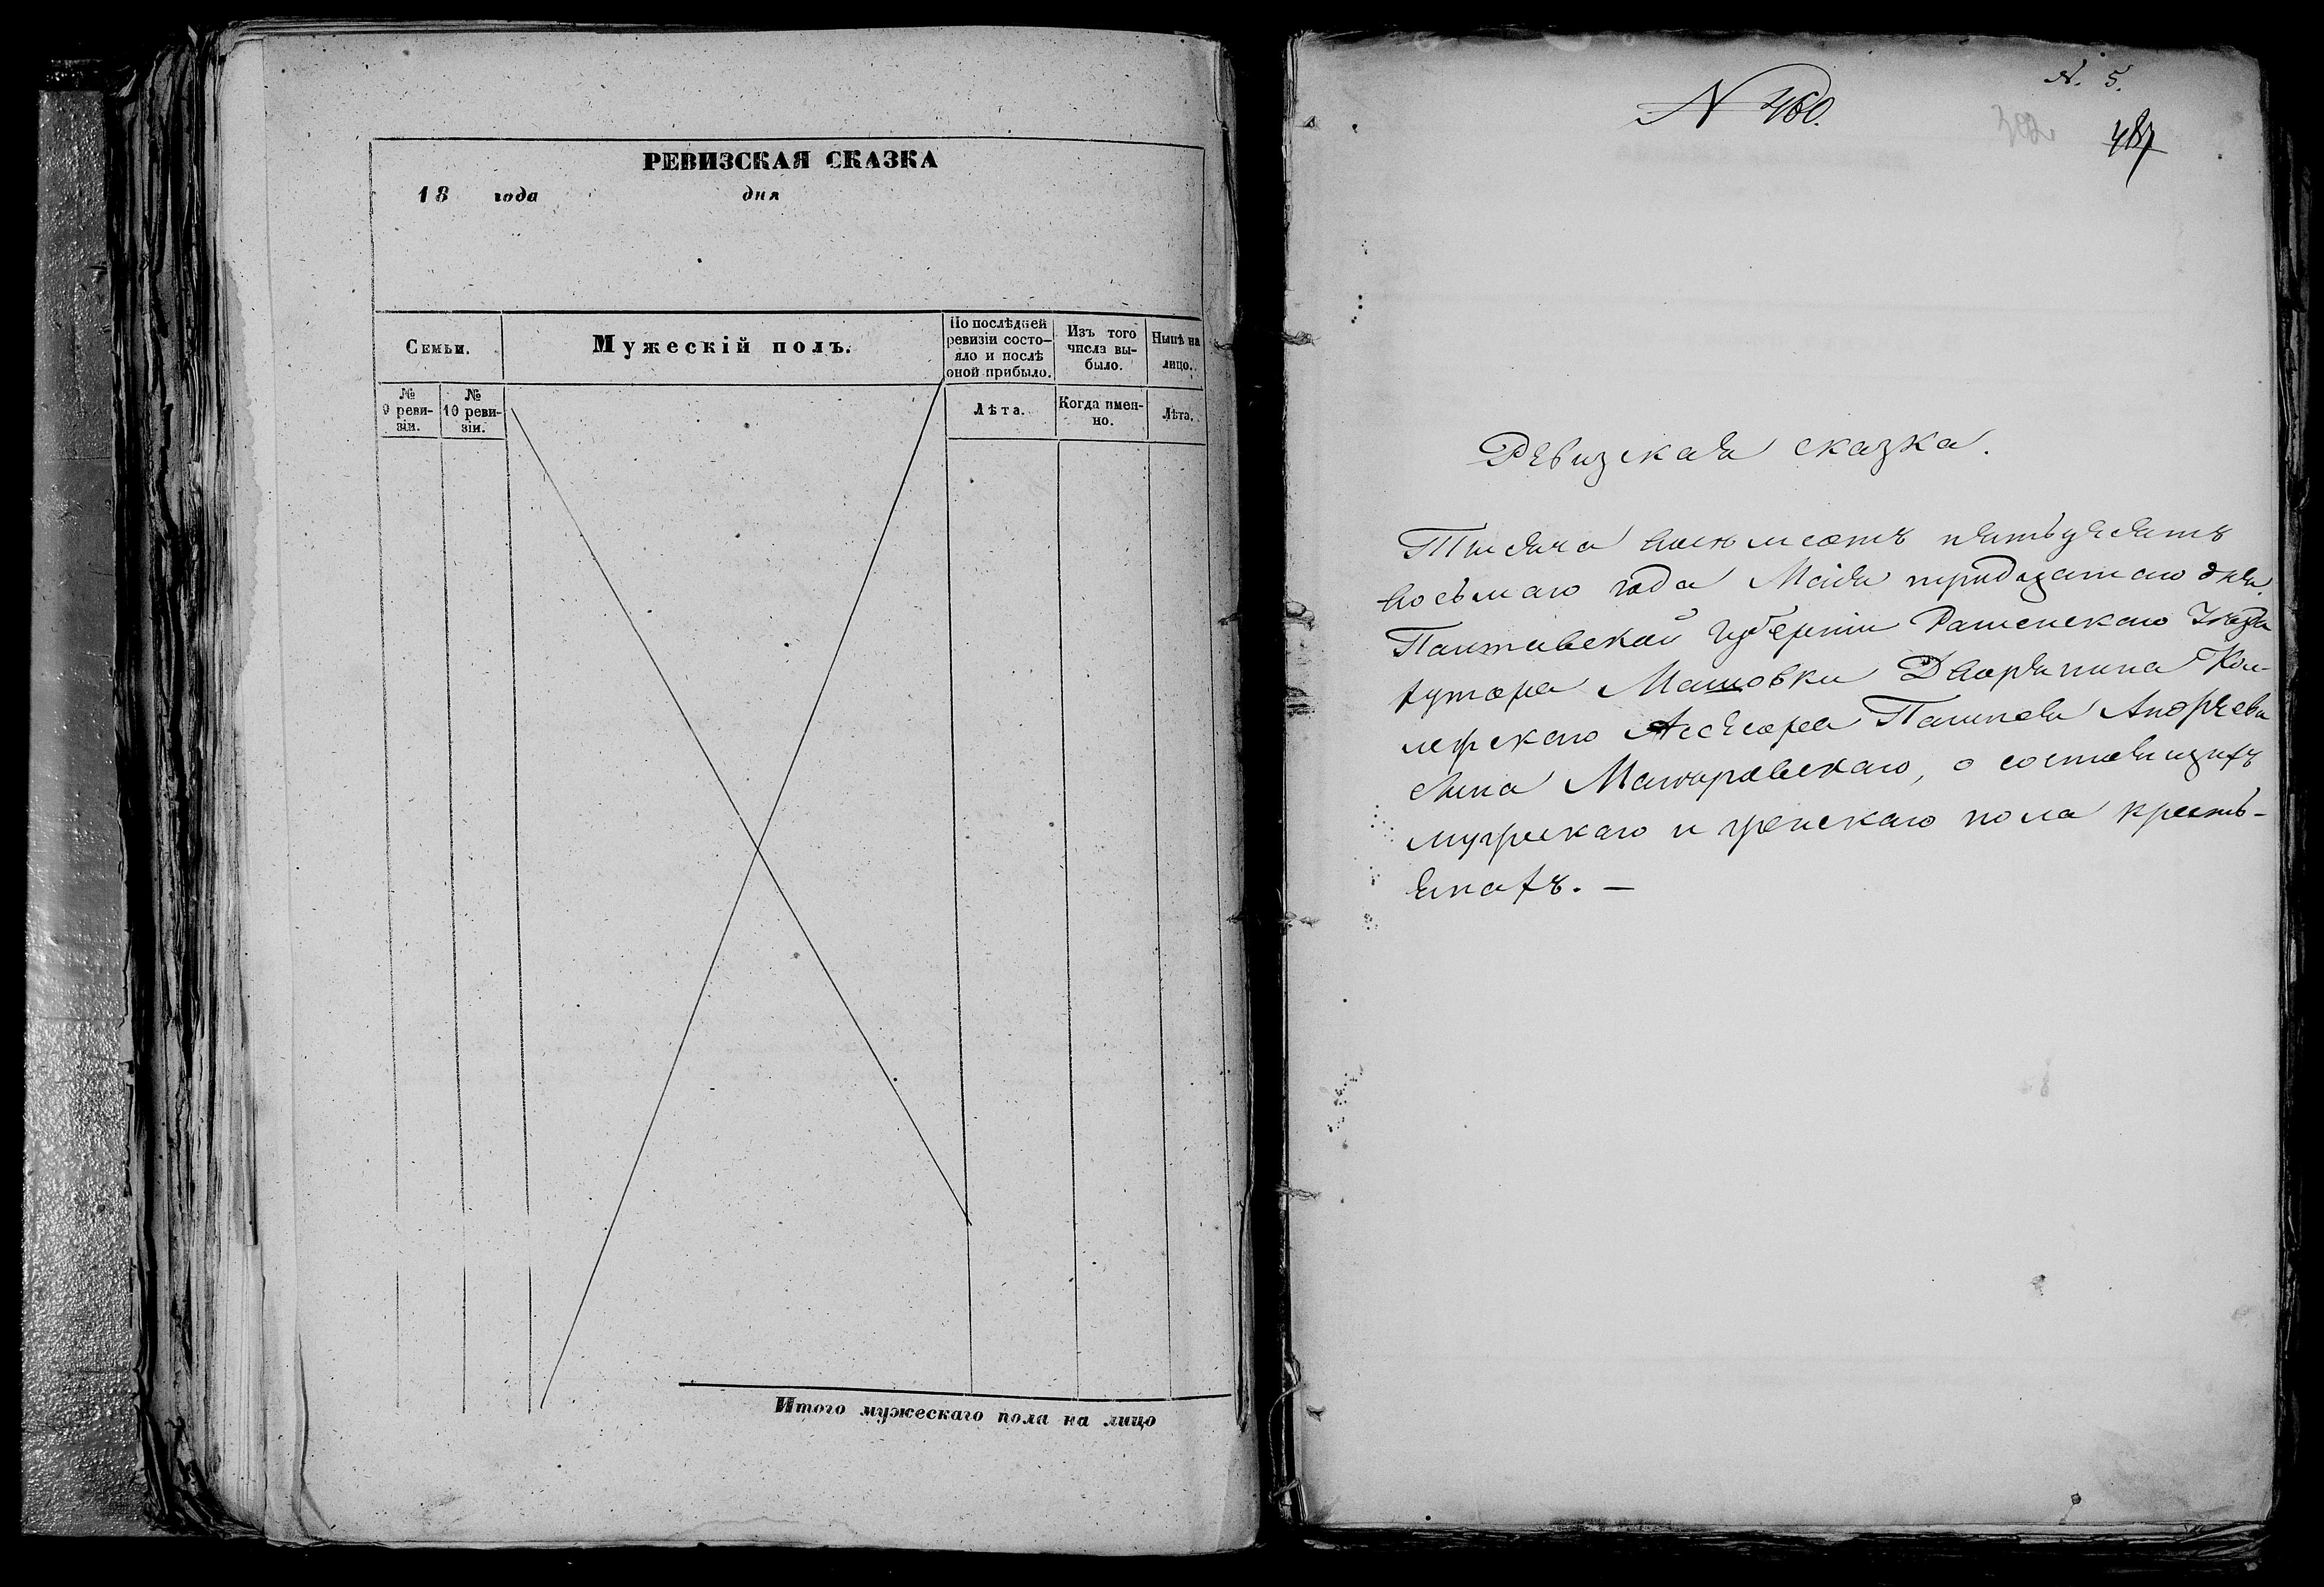 РЕВИЗСКАЯ СКАЗКА
18 года дня
Семьи.
Мужескій полъ.
По послѣдней ревизіи состо-
яло и послѣ
оной прибыло.
Изъ того
числа вы-
было.
Нынѣ на
лицо.
№
9 реви-
зіи.
№
10 реви-
зіи.
Лѣта.
Когда имен-
но.
Лѣта.
Итого мужескаго пола на лицо
N 460.
N. 5.
487
Ревизская сказка.
Тысяча восьмсотъ пятьдесятъ
восьмаго года Маія тридцатаго дня.
Полтавской Губерніи Роменскаго Уѣзда
хутора Машовки Дворянина Кол-
лежскаго Ассесора Андреева
сына о состоящихъ
мужескаго и женскаго пола кресть-
янахъ. —